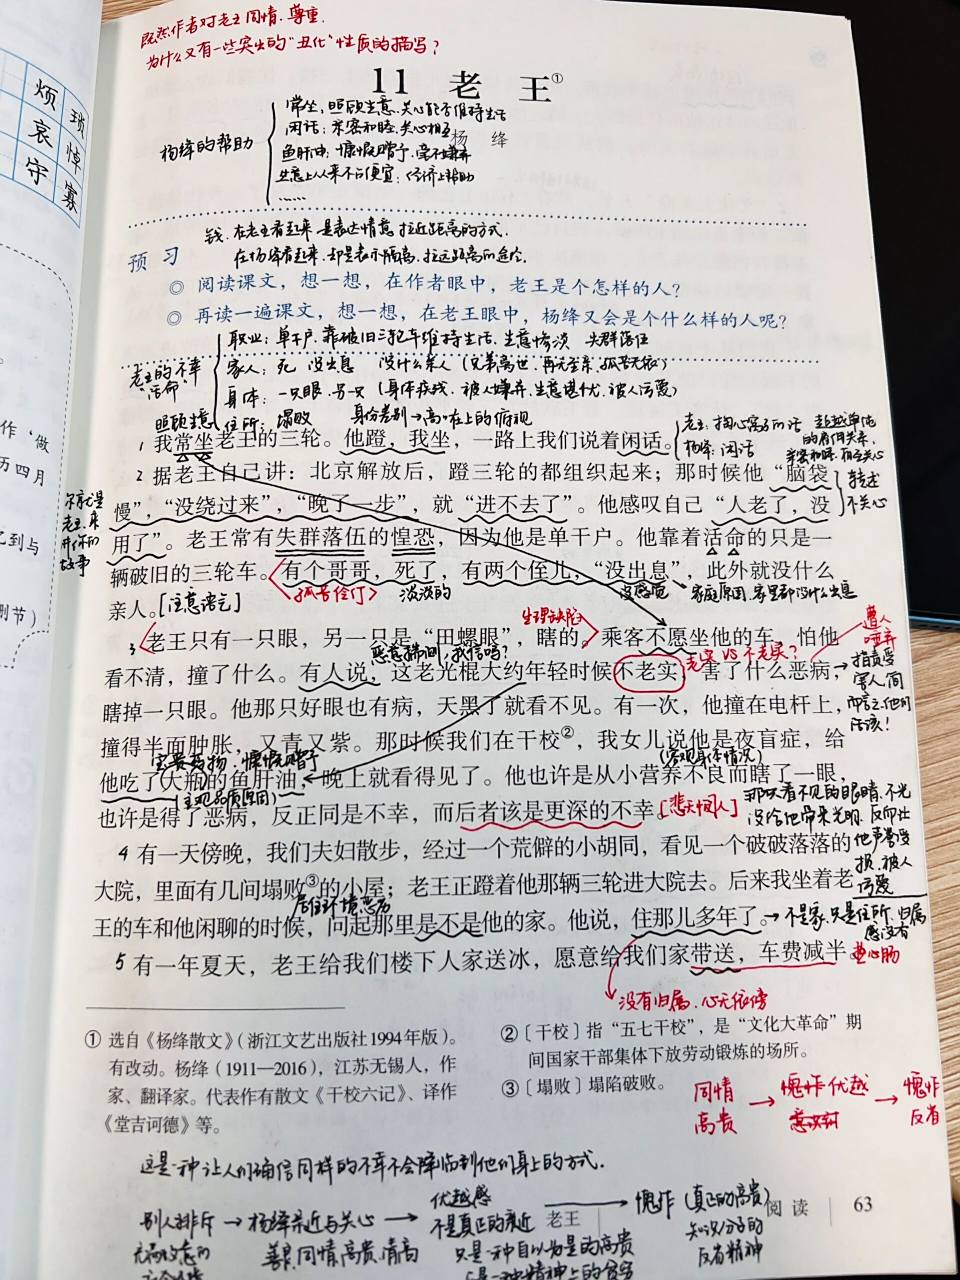 既然作者对老王同情、尊重,
为什么又有一些突出的“丑化”性质的描写?
烦 琐
哀 悼
守 寡
11 老 王①
杨 绛
杨绛的帮助
常坐,照顾生意、关心能否维持生活
闲话:亲密和睦、关心相互
鱼肝油:慷慨赠予、毫不嫌弃
……
钱,在老王看起来是表达情意、拉近距离的方式.
在杨绛看起来,却是表示隔离、拉远距离的途径.
预 习
◎ 阅读课文,想一想,在作者眼中,老王是个怎样的人?
◎ 再读一遍课文,想一想,在老王眼中,杨绛又会是个什么样的人呢?
老王的不幸
“活命”
职业:单干户、靠破旧三轮车维持生活、生意惨淡 失群落伍
家人:死 没出息 没什么亲人(兄弟离世、再无至亲、孤苦无依)
身体:一只眼、另一只(身体疾残、被人嫌弃、生意堪忧、被人污蔑)
住所:塌败
照顾生意
身份差别→高高在上的俯视
1 我常坐老王的三轮。他蹬,我坐,一路上我们说着闲话。
老王:掏心窝子的话
杨绛:闲话
2 据老王自己讲:北京解放后,蹬三轮的都组织起来;那时候他“脑袋
慢”,“没绕过来”,“晚了一步”,就“进不去了”。他感叹自己“人老了,没
用了”。老王常有失群落伍的惶恐,因为他是单干户。他靠着活命的只是一
辆破旧的三轮车。有个哥哥,死了,有两个侄儿,“没出息”,此外就没什么
亲人。[注意语气]
转述
不关心
孤苦伶仃
淡淡的
没感觉
家庭原因、家里都没什么出息
3 老王只有一只眼,另一只是“田螺眼”,瞎的。乘客不愿坐他的车,怕他
看不清,撞了什么。有人说,这老光棍大约年轻时候不老实,害了什么恶病,
瞎掉一只眼。他那只好眼也有病,天黑了就看不见。有一次,他撞在电杆上,
撞得半面肿胀,又青又紫。那时候我们在干校②,我女儿说他是夜盲症,给
他吃了大瓶的鱼肝油,晚上就看得见了。他也许是从小营养不良而瞎了一眼,
也许是得了恶病,反正同是不幸,而后者该是更深的不幸。[悲天悯人]
生理缺陷
老实 VS 不老实?
遭人
唾弃
宝贵药物、慷慨赠予
(客观身体情况)
(主观品质原因)
那只看不见的眼睛、不光
没给他带来光明、反而让
他声誉受
损、被人
污蔑
4 有一天傍晚,我们夫妇散步,经过一个荒僻的小胡同,看见一个破破落落的
大院,里面有几间塌败③的小屋;老王正蹬着他那辆三轮进大院去。后来我坐着老
王的车和他闲聊的时候,问起那里是不是他的家。他说,住那儿多年了。
居住环境恶劣
→不是家,只是住所,归属
感没有
5 有一年夏天,老王给我们楼下人家送冰,愿意给我们家带送,车费减半。
没有归属、心无依傍
① 选自《杨绛散文》(浙江文艺出版社1994年版)。
有改动。杨绛(1911—2016),江苏无锡人,作
家、翻译家。代表作有散文《干校六记》、译作
《堂吉诃德》等。
②〔干校〕指“五七干校”,是“文化大革命”期
间国家干部集体下放劳动锻炼的场所。
③〔塌败〕塌陷破败。
同情
高贵
→ 愧怍 优越
→ 愧怍
反省
这是一种让人们确信同样的不幸不会降临到他们身上的方式.
别人排斥 → 杨绛亲近与关心 → 优越感 → 愧怍(真正的高贵)
善良、同情、高贵、清高
不是真正的亲近
只是一种自以为是的高贵
知识分子的
反省精神
老王
阅 读 63